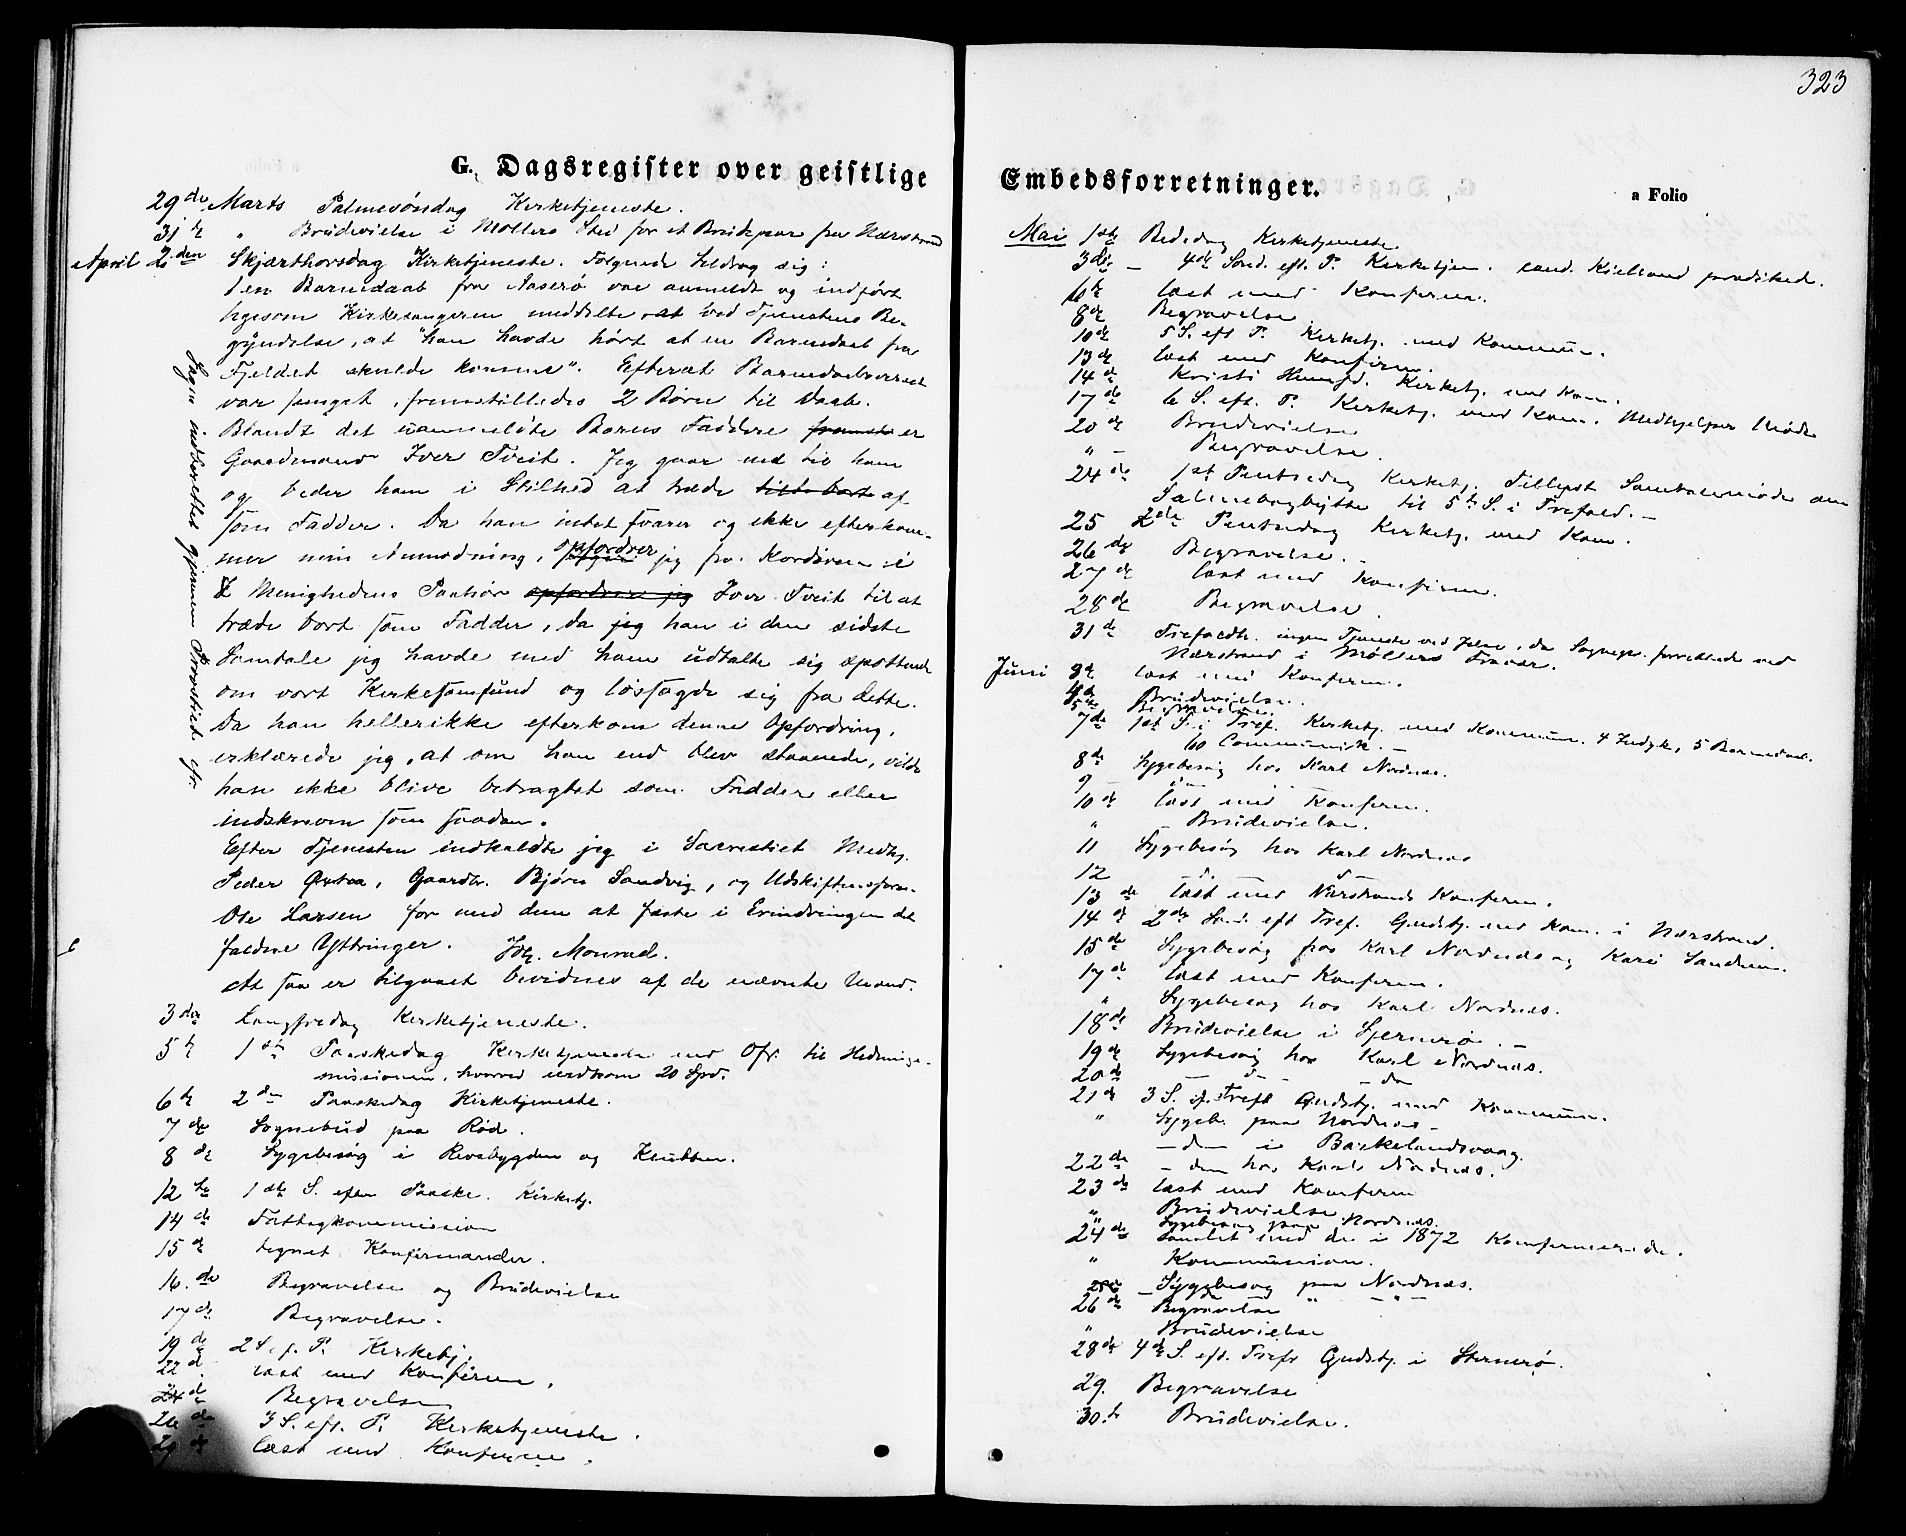 323
G. Dagsregister over geistlige
29de Marts Palmesøndag Kirketjeneste.
31te " Brudevielse i Møllers Sted for et Brudepar fra Nærstrand
April 2den Skjærthorsdag Kirketjeneste. Følgende tildrog sig:
en Barnedaab fra var anmeldt og indført
ligesom Kirkesangeren meddelte at ved Tjenestens Be-
gyndelse, at "han havde hørt at en Barnedaab fra
Fjeldet skulde komme". Efterat Barnedaabsverset
var sunget, fremstilledes 2 Børn til Daab.
Blandt det uanmeldte Barns Faddere er
Gaardmand Iver Tveit. Jeg gaar ned til ham
og beder ham i Stilhed at træde af
som Fadder. Da han intet svarer og ikke efterkom-
mer min Anmodning, opfordrer jeg fra Kordøren i
Menighedens Paahør opfordrer jeg Iver Tveit til at
træde bort som Fadder, da jeg han i den sidste
Samtale jeg havde med ham udtalte sig spottende
om vort Kirkesamfund og løssagde sig fra dette.
Da han hellerikke efterkom denne Opfordring,
erklærede jeg, at om han end blev staaende, vilde
han ikke blive betragtet som Fadder eller
indskreven som saadan.
Efter Tjenesten indkaldte jeg i Sacrestiet Medhj.
Peder Østaa, Gaardbr. Bjørn Sandvig, og Udskiftningsform.
Ole Larsen for med dem at fæste i Erindringen de
faldne Yttringer. Monrad.
At saa er tilgaaet bevidnes af de nævnte Mænd.
Sagen indberettet gjennem Provstiet
3die Langfredag Kirketjeneste.
5te 1ste Paaskedag Kirketjeneste med Ofr. til Hednings-
missionen, hvorved indkom 20 Spd.
6te 2den Paaskedag Kirketjeneste.
7de Sognebud paa Rød.
8de Sygebesøg i og
12te 1ste S. efter Paaske. Kirketj.
14de Fattigkommission
15de tegnet Konfirmander.
16de Begravelse og Brudevielse
17de Begravelse.
19de 2 S. e. P. Kirketj.
22de læst med Konfirm.
24de Begravelse
26de 3 S. eft. P. Kirketjeneste.
29de læst med Konfirm.
Embedsforretninger.
a Folio
Mai 1ste Bededag Kirketjeneste
3die — 4de Sønd. eft. P. Kirketjen. cand. Kielland prædikede.
6te læst med Konfirm.
8de Begravelse
10de 5 S. eft P. Kirketj. med Kommun.
13de læst med Konfirm.
14de Kristi Himmelf. Kirketj. med Kom.
17de 6 S. eft. P. Kirketj. med Kom. Medhjelper Møde
20de Brudevielse
" — Begravelse.
24de 1ste Pintsedag Kirketj. Tillyst Samtalemøde om
Salmebogbytte til 5te S. i Trefold. —
25 2den Pintsedag Kirketj. med Kom.
26de Begravelse.
27de læst med Konfirm.
28de Begravelse
31de Trefoldh. ingen Tjeneste ved Jelse, da Sognepr. forrettede ved
Nærstrand i Møllers Fravær.
Juni 3de læst med Konfirm.
4de Brudevielse.
5te Begravelse
7de 1ste S. i Tref. Kirketj. med Kommun. 4 Indgk, 5 Barnedaab.
60 Communik. —
8de Sygebesøg hos Karl Nordnæs.
9 — do —
10de læst med Konfirm.
" Brudevielse.
11 Sygebesøg hos Karl Nordnæs
12 — d. — d —
13de læst med Nærstrands Konfirm.
14de 2den Sønd. eft Tref. Gudstj. med Kom. i Nærstrand.
15de Sygebesøg hos Karl Nordnæs og Kari
17de læst med Konfirm.
" Sygebesøg hos Karl Nordnæs.
18de Brudevielse i Sjernerø. —
19de Sygebesøg hos Karl Nordnæs.
20de — d — — do
21de 3 S. ef. Tref. Gudstj. med Kommun.
" Sygeb. paa Nordnæs —
— den — i Barkelandsvaag.
22de — den hos Karl Nordnæs.
23de læst med Konfirm
" Brudevielse
" Sygebesøg paa Nordnæs.
24de Samlet med de i 1872 Konfirmerede.
" Kommunion.
25de — Sygebesøg paa Nordnæs.
26de Begravelse " — " —
" Brudevielse
28de 4de S. eft. Tref. Gudstj. i Sjernerø.
29. Begravelse
30te Brudevielse.